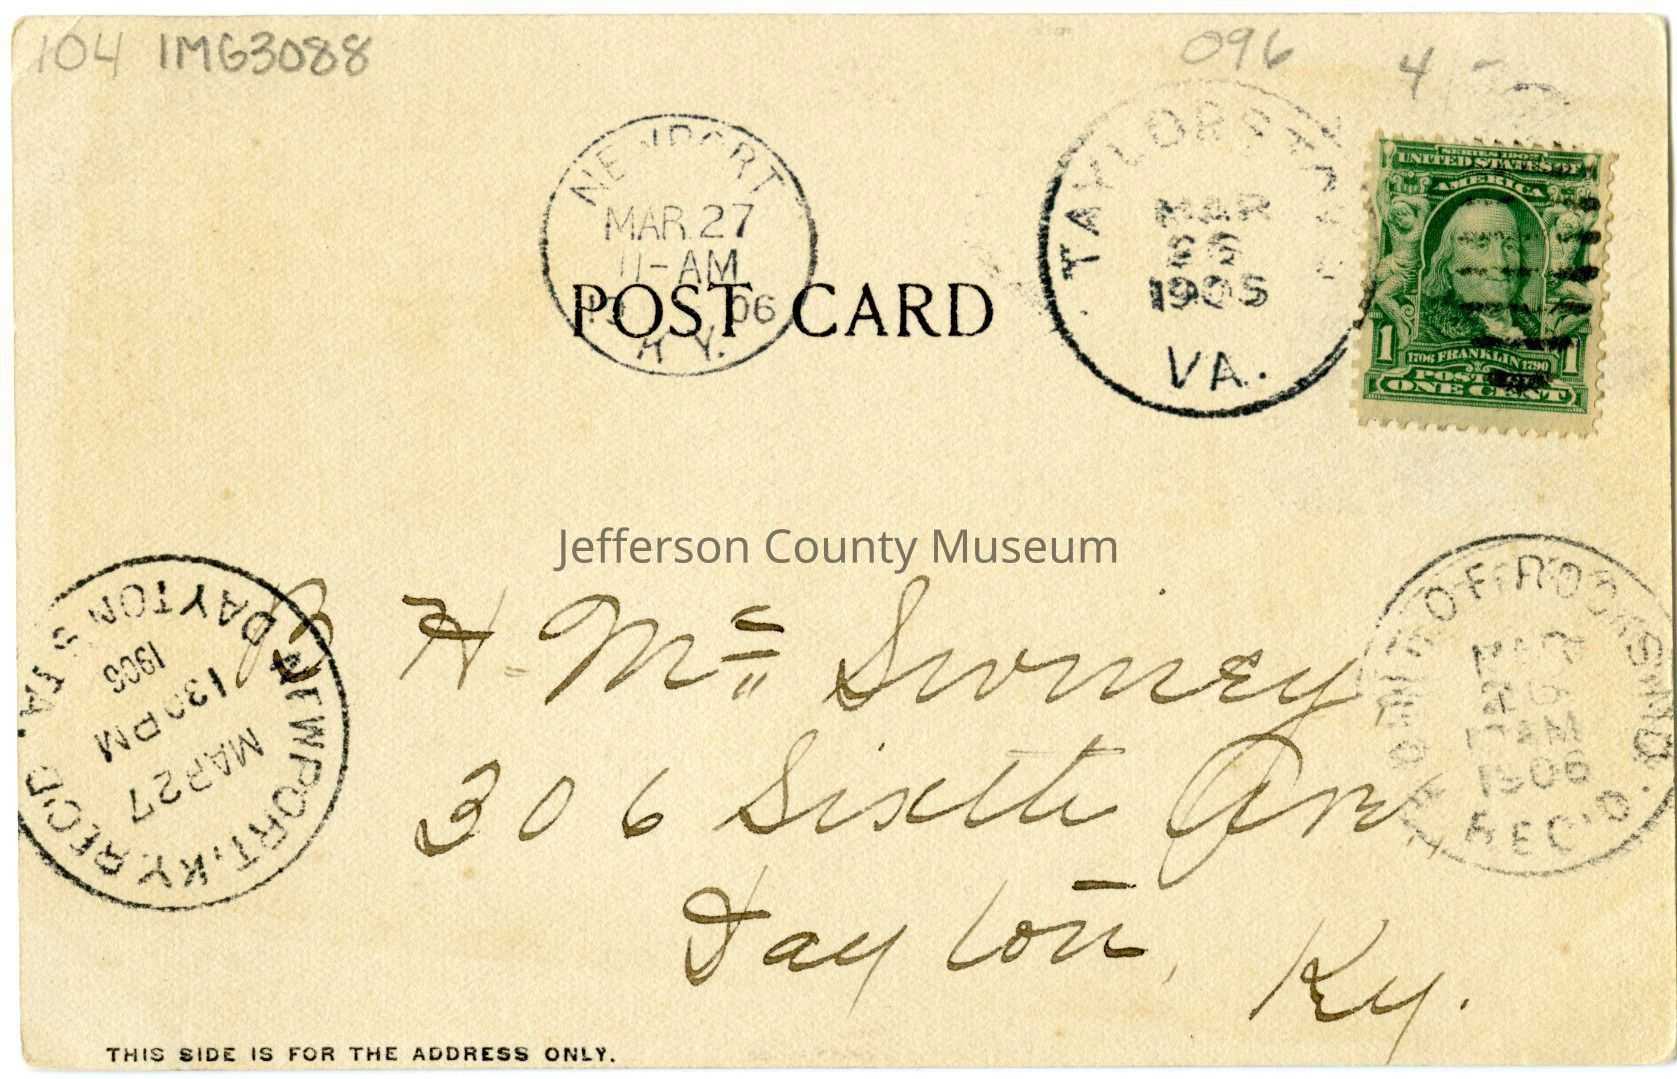 104 IMG3088
096
4
NEWPORT
MAR 27
11-AM
19 06
KY.
TAYLORSTOWN
MAR
26
VA.
SERIES 1902
UNITED STATES OF
AMERICA
1706 FRANKLIN 1790
1 1
POSTAGE
ONE CENT
POST CARD
Jefferson County Museum
B H. Mc Swiney
306 Sixth Ave
Dayton, Ky.
DAYTON STA.
1906
130PM
MAR 27
NEWPORT, KY. REC'D
POINT OF ROCKS, MD.
1906
REC'D.
THIS SIDE IS FOR THE ADDRESS ONLY.